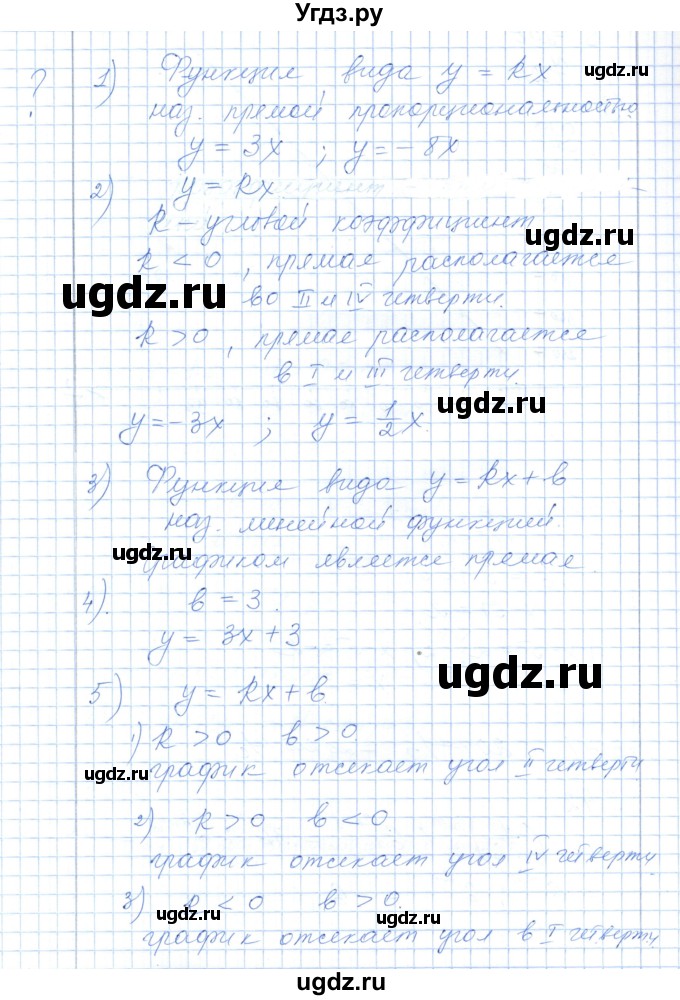 Угдз.ру
? 1) Функция вида y = kx
наз. прямой пропорциональностью.
y = 3x ; y = - 8x
2) y = kx
k - угловой коэффициент
k < 0, прямая располагается
во II и IV четверти.
k > 0, прямая располагается
в I и III четверти.
y = - 3x ; y = 1/2 x.
3) Функция вида y = kx + b
наз. линейной функцией
графиком является прямая.
4). b = 3.
y = 3x + 3
5) y = kx + b.
1) k > 0 b > 0
график отсекает угол II четверти
2) k > 0 b < 0.
график отсекает угол IV четверти.
3) k < 0 b > 0.
график отсекает угол в I четверти
ugdz.ru
ugdz.ru
ugdz.ru
ugdz.ru
ugdz.ru
ugdz.ru
ugdz.ru
ugdz.ru
ugdz.ru
ugdz.ru
ugdz.ru